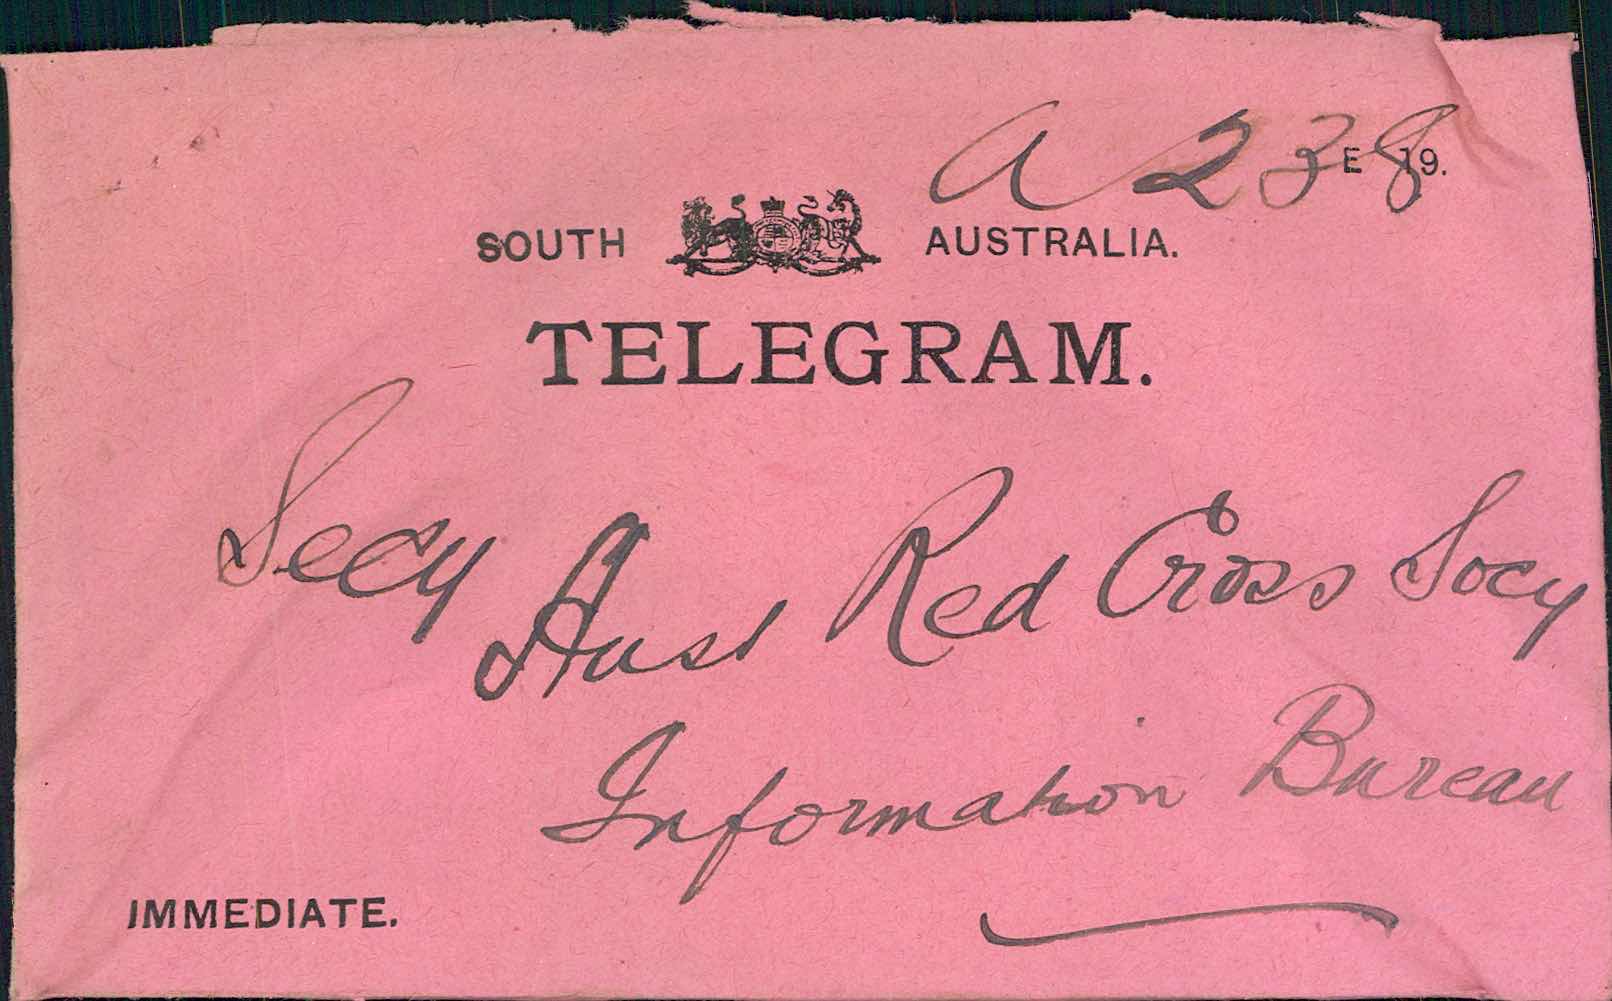 A 238
E 19.
SOUTH AUSTRALIA.
TELEGRAM.
Secy Aust Red Cross Socy
Information Bureau
IMMEDIATE.